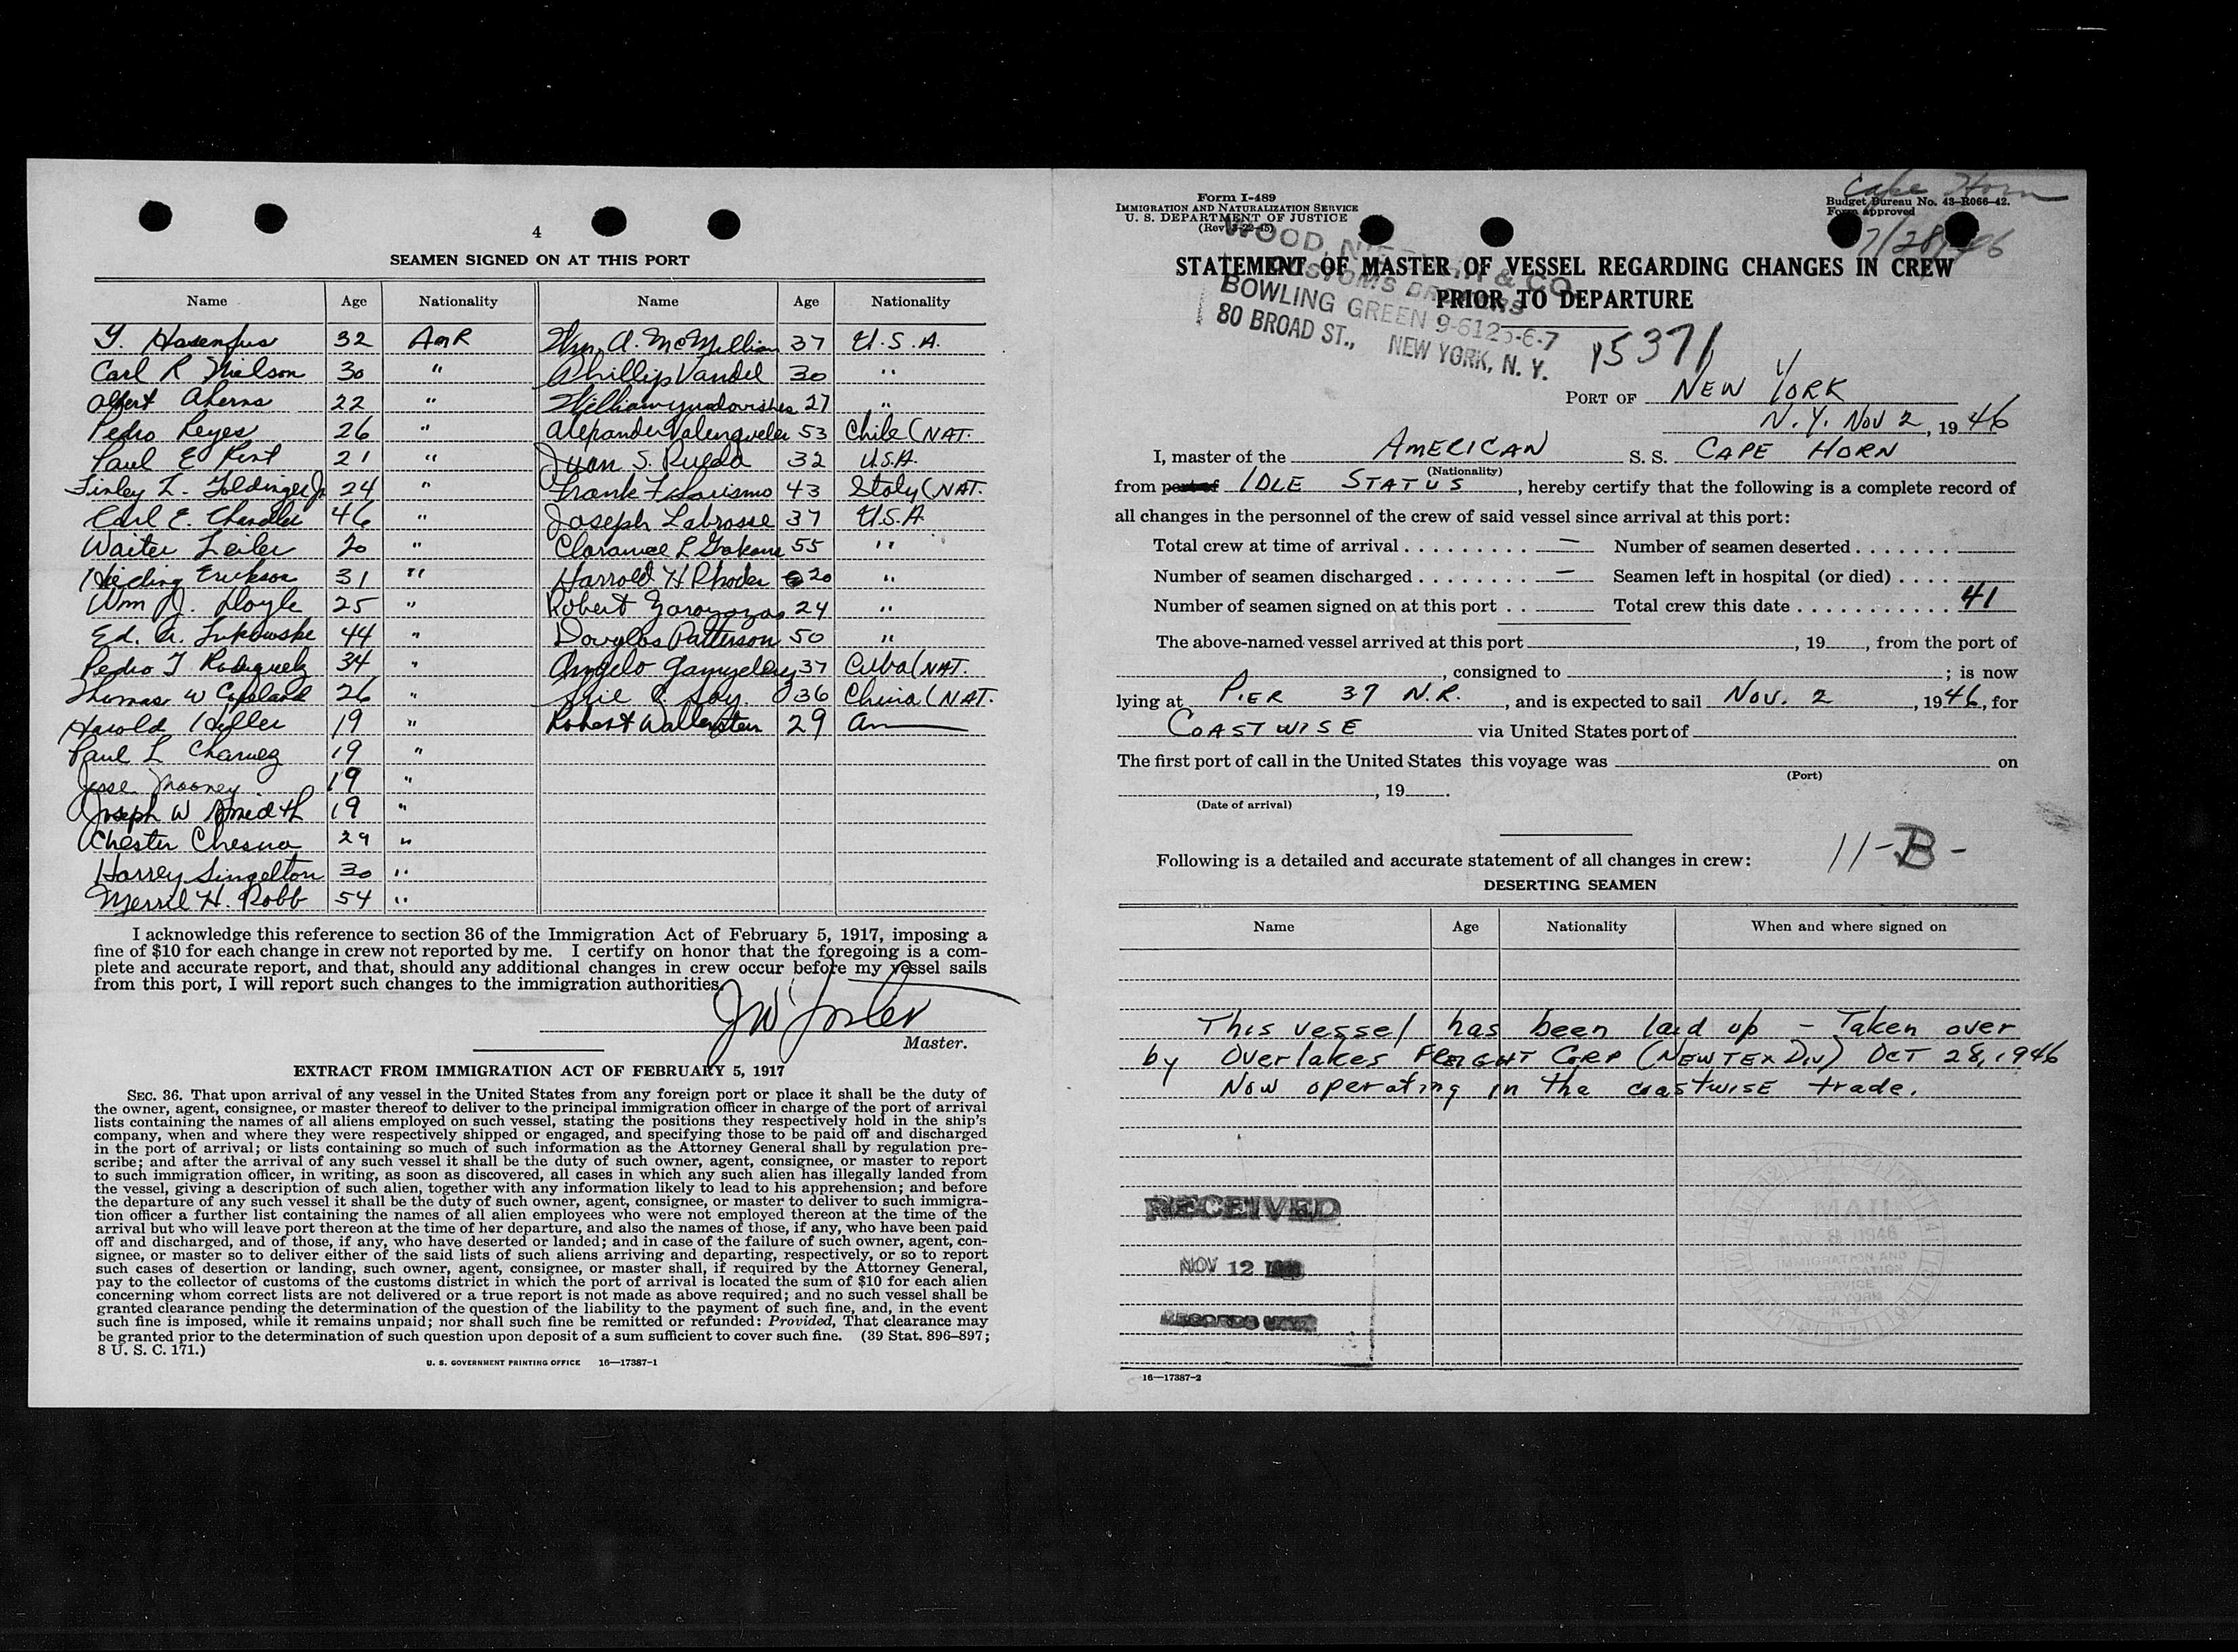 4
SEAMEN SIGNED ON AT THIS PORT
Name Age Nationality Name Age Nationality
Y. Hasenfus 32 AmR Wm. A. McMillian 37 U.S.A.
Carl R Nielson 30 " Phillip Vandel 30 "
Albert Aherns 22 " William 27 "
Pedro Reyes 26 " Alexander Valenzuela 53 Chile (NAT.
Paul E Kent 21 " Juan S. Rueda 32 U.S.A.
Finley L. Goldinger Jr 24 " Frank 43 Italy (NAT.
Carl E. Chandler 46 " Joseph Labrosse 37 U.S.A.
Walter Leiler 20 " Clarance L Grahame 55 "
Erickson 31 " Harrold H Rhodes 20 "
Wm J. Doyle 25 " Robert 24 "
Ed. A. Lukowske 44 " Douglas Patterson 50 "
Pedro J Rodriguez 34 " Angelo 37 Cuba (NAT.
Thomas W Copeland 26 " 36 China (NAT.
Harold Hiller 19 " Robert Wallerstein 29 Am
Paul L Charvez 19 "
Jesse Mooney 19 "
Joseph W Smidth 19 "
Chester Chesna 29 "
Harrey Singelton 30 "
Merril H. Robb 54 "
I acknowledge this reference to section 36 of the Immigration Act of February 5, 1917, imposing a
fine of $10 for each change in crew not reported by me. I certify on honor that the foregoing is a com-
plete and accurate report, and that, should any additional changes in crew occur before my vessel sails
from this port, I will report such changes to the immigration authorities.
Master.
EXTRACT FROM IMMIGRATION ACT OF FEBRUARY 5, 1917
SEC. 36. That upon arrival of any vessel in the United States from any foreign port or place it shall be the duty of
the owner, agent, consignee, or master thereof to deliver to the principal immigration officer in charge of the port of arrival
lists containing the names of all aliens employed on such vessel, stating the positions they respectively hold in the ship's
company, when and where they were respectively shipped or engaged, and specifying those to be paid off and discharged
in the port of arrival; or lists containing so much of such information as the Attorney General shall by regulation pre-
scribe; and after the arrival of any such vessel it shall be the duty of such owner, agent, consignee, or master to report
to such immigration officer, in writing, as soon as discovered, all cases in which any such alien has illegally landed from
the vessel, giving a description of such alien, together with any information likely to lead to his apprehension; and before
the departure of any such vessel it shall be the duty of such owner, agent, consignee, or master to deliver to such immigra-
tion officer a further list containing the names of all alien employees who were not employed thereon at the time of the
arrival but who will leave port thereon at the time of her departure, and also the names of those, if any, who have been paid
off and discharged, and of those, if any, who have deserted or landed; and in case of the failure of such owner, agent, con-
signee, or master so to deliver either of the said lists of such aliens arriving and departing, respectively, or so to report
such cases of desertion or landing, such owner, agent, consignee, or master shall, if required by the Attorney General,
pay to the collector of customs of the customs district in which the port of arrival is located the sum of $10 for each alien
concerning whom correct lists are not delivered or a true report is not made as above required; and no such vessel shall be
granted clearance pending the determination of the question of the liability to the payment of such fine, and, in the event
such fine is imposed, while it remains unpaid; nor shall such fine be remitted or refunded: Provided, That clearance may
be granted prior to the determination of such question upon deposit of a sum sufficient to cover such fine. (39 Stat. 896–897;
8 U. S. C. 171.)
U. S. GOVERNMENT PRINTING OFFICE 16—17387-1
Form I-489
IMMIGRATION AND NATURALIZATION SERVICE
U. S. DEPARTMENT OF JUSTICE
(Rev. 3-22-45)
Cape Horn
Budget Bureau No. 43-R066-42.
Form approved
7/28/46
WOOD, & CO.
CUSTOMS BROKERS
BOWLING GREEN 9-6125-6-7
80 BROAD ST., NEW YORK, N. Y.
STATEMENT OF MASTER OF VESSEL REGARDING CHANGES IN CREW
PRIOR TO DEPARTURE
15371
PORT OF NEW YORK
N.Y. Nov 2, 1946
I, master of the AMERICAN S. S. CAPE HORN
(Nationality)
from port of IDLE STATUS, hereby certify that the following is a complete record of
all changes in the personnel of the crew of said vessel since arrival at this port:
Total crew at time of arrival — Number of seamen deserted
Number of seamen discharged — Seamen left in hospital (or died)
Number of seamen signed on at this port Total crew this date 41
The above-named vessel arrived at this port , 19 , from the port of
, consigned to ; is now
lying at PIER 37 N.R., and is expected to sail Nov. 2, 1946, for
COASTWISE via United States port of
The first port of call in the United States this voyage was on
(Port)
, 19 .
(Date of arrival)
11-B-
Following is a detailed and accurate statement of all changes in crew:
DESERTING SEAMEN
Name Age Nationality When and where signed on
This vessel has been laid up – Taken over
by Overlakes FREIGHT CORP (NEWTEX DIV) OCT 28, 1946
Now operating in the coastwise trade.
RECEIVED
NOV 12
MAIL
NOV 8 1946
IMMIGRATION AND
NATURALIZATION
SERVICE
NEW YORK
N. Y.
16—17387-2